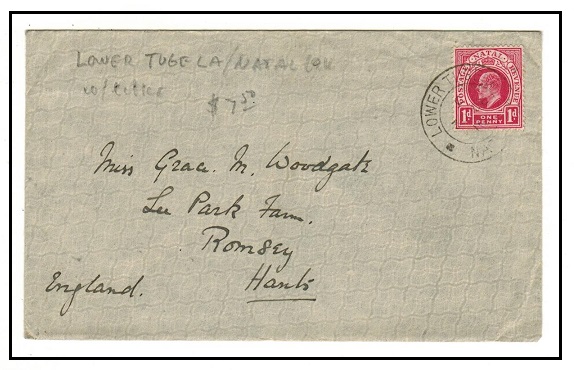 LOWER TUGELA/NATAL
w/letter
$7.50
POSTAGE NATAL REVENUE
1d ONE PENNY 1d
LOWER T
NA
Miss Grace. M. Woodgate
Lee Park Farm.
Romsey
Hants
England.